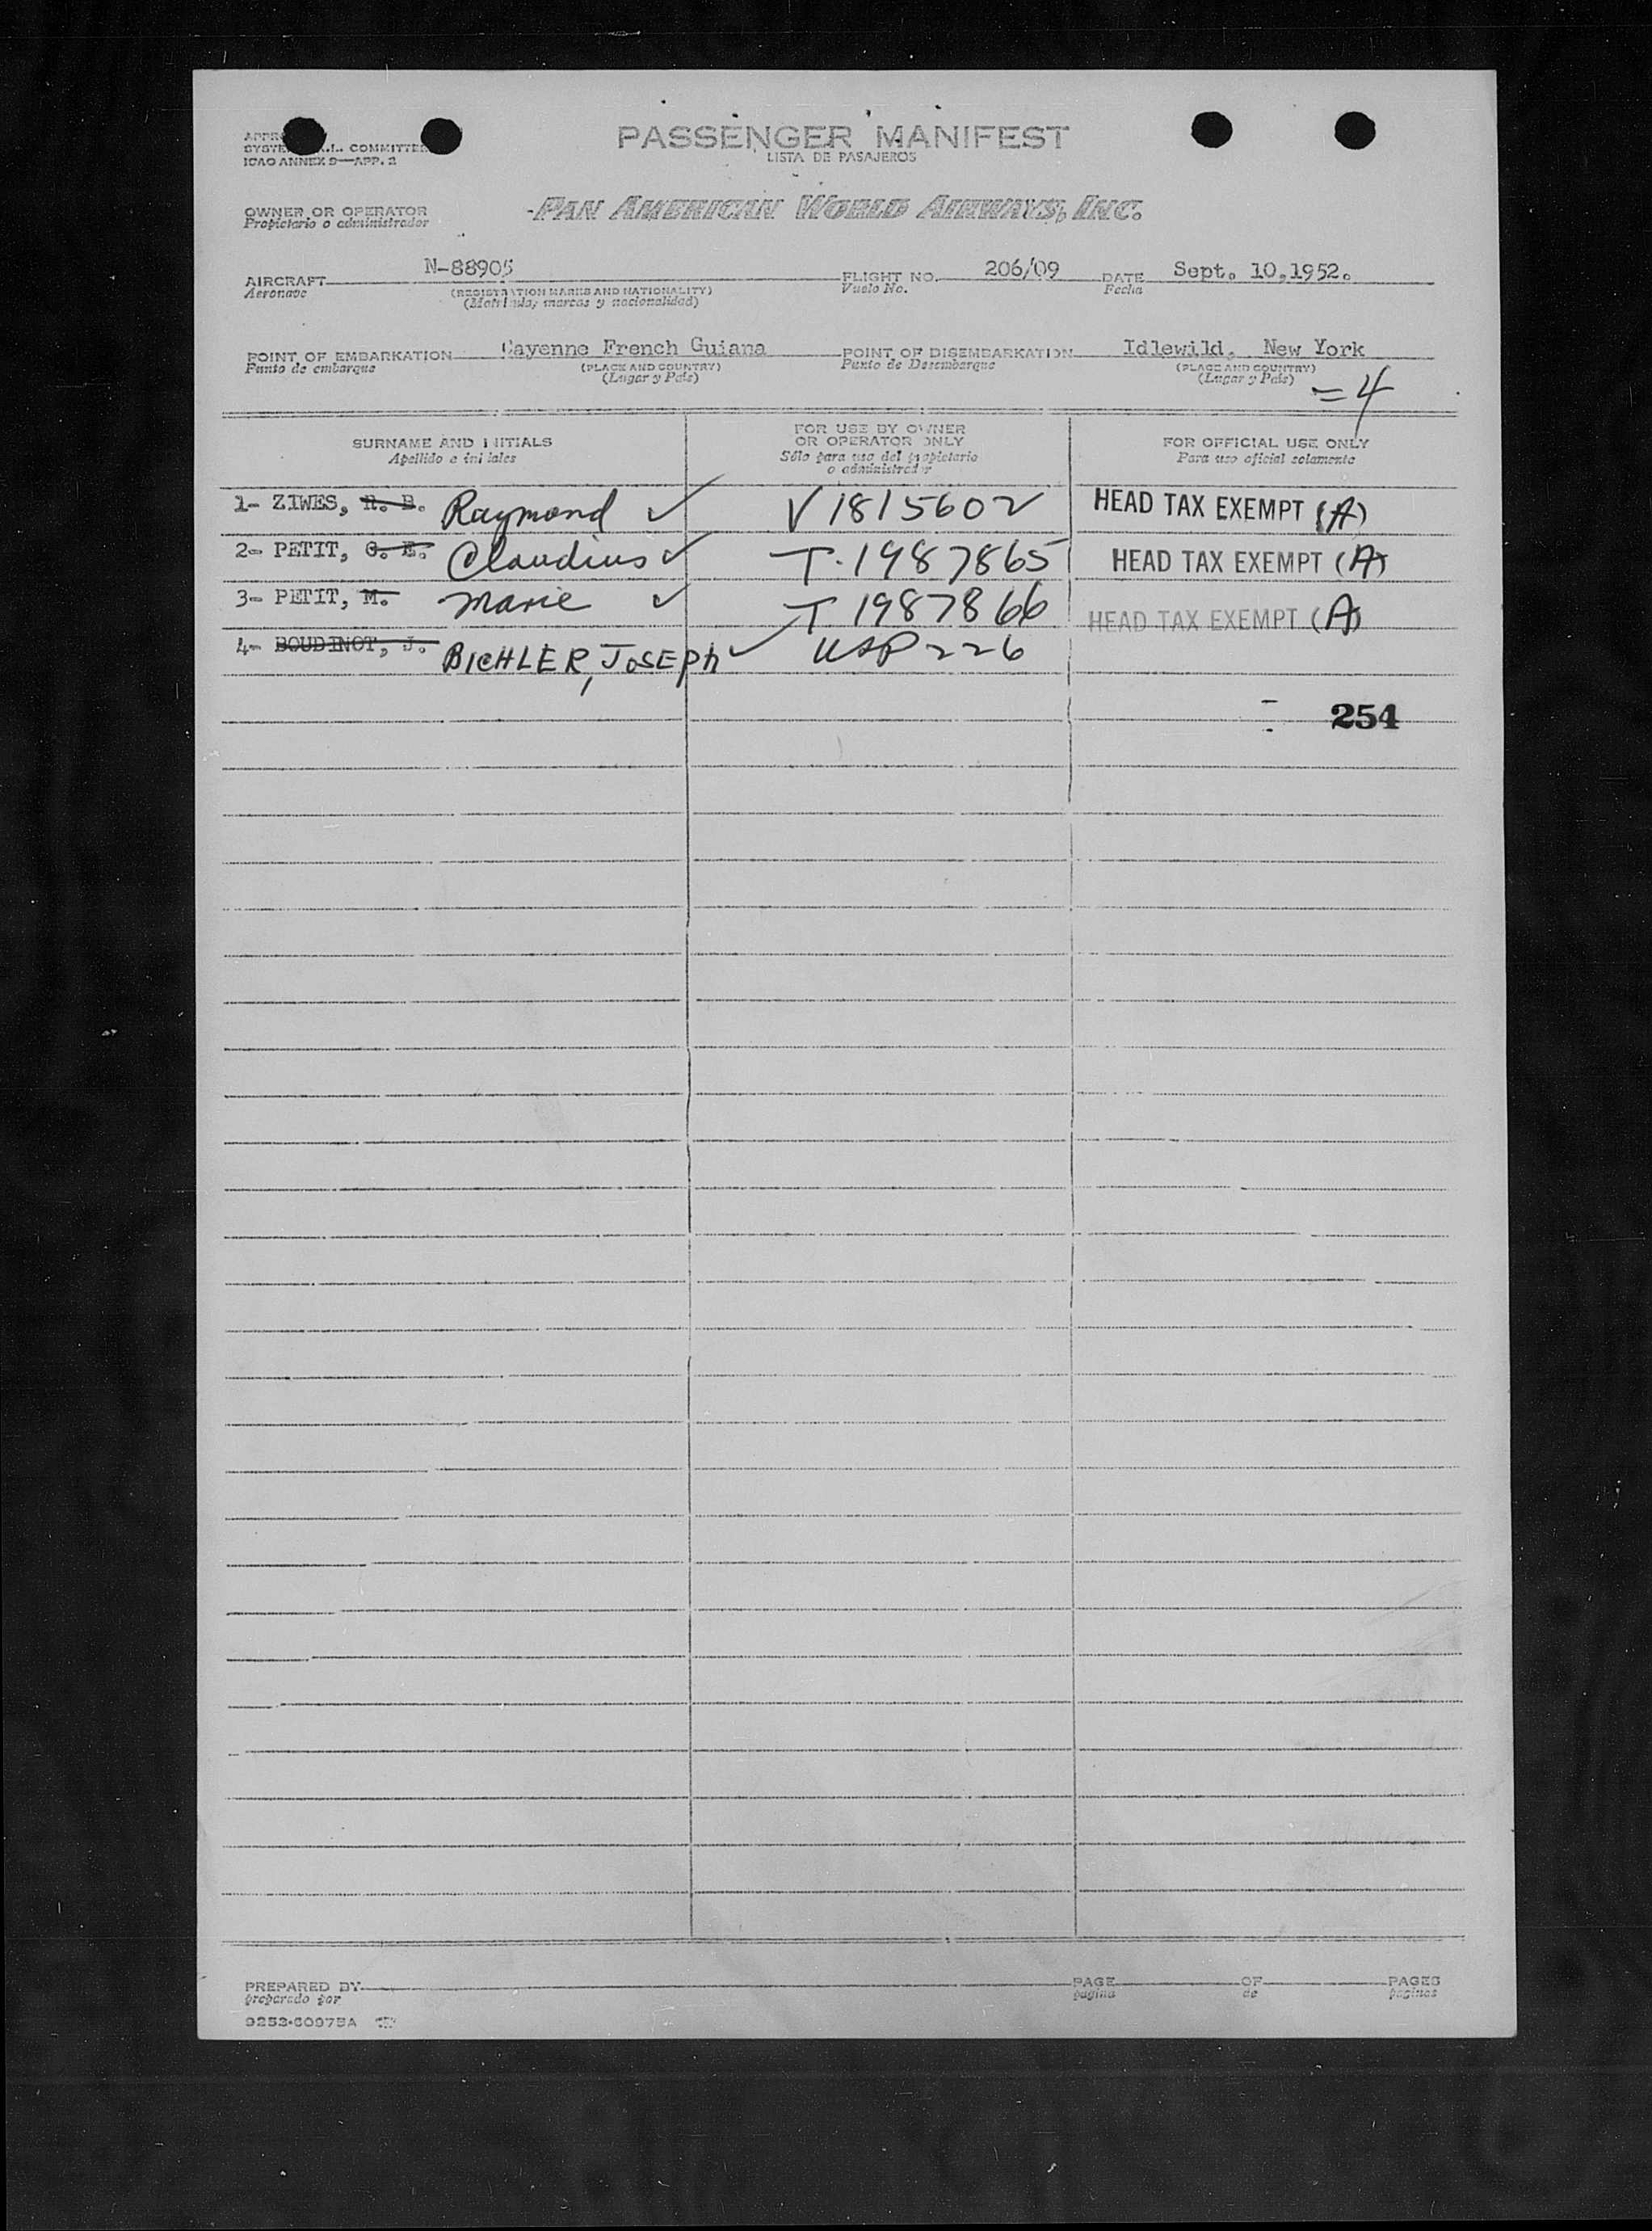 PASSENGER MANIFEST
LISTA DE PASAJEROS
COMMITTEE
ICAO ANNEX 9—APP. 2
OWNER OR OPERATOR
Propietario o administrador
PAN AMERICAN WORLD AIRWAYS, INC.
AIRCRAFT N-88905 FLIGHT NO. 206/09 DATE Sept. 10,1952.
Aeronave (REGISTRATION MARKS AND NATIONALITY) Vuelo No. Fecha
(Matrícula, marcas y nacionalidad)
POINT OF EMBARKATION Cayenne French Guiana POINT OF DISEMBARKATION Idlewild, New York
Punto de embarque (PLACE AND COUNTRY) Punto de Desembarque (PLACE AND COUNTRY)
(Lugar y País) (Lugar y País)
=4
SURNAME AND INITIALS
Apellido e iniciales
FOR USE BY OWNER
OR OPERATOR ONLY
Sólo para uso del propietario
o administrador
FOR OFFICIAL USE ONLY
Para uso oficial solamente
1- ZIWES, R. B. Raymond ✓ V1815602 HEAD TAX EXEMPT (A)
2- PETIT, C. E. Claudius ✓ T.1987865 HEAD TAX EXEMPT (A)
3- PETIT, M. Marie ✓ T1987866 HEAD TAX EXEMPT (A)
4- BOUDINOT, J. BICHLER, JOSEPh ✓ USP226
254
PREPARED BY PAGE OF PAGES
preparado por pagina de paginas
9253-60975A